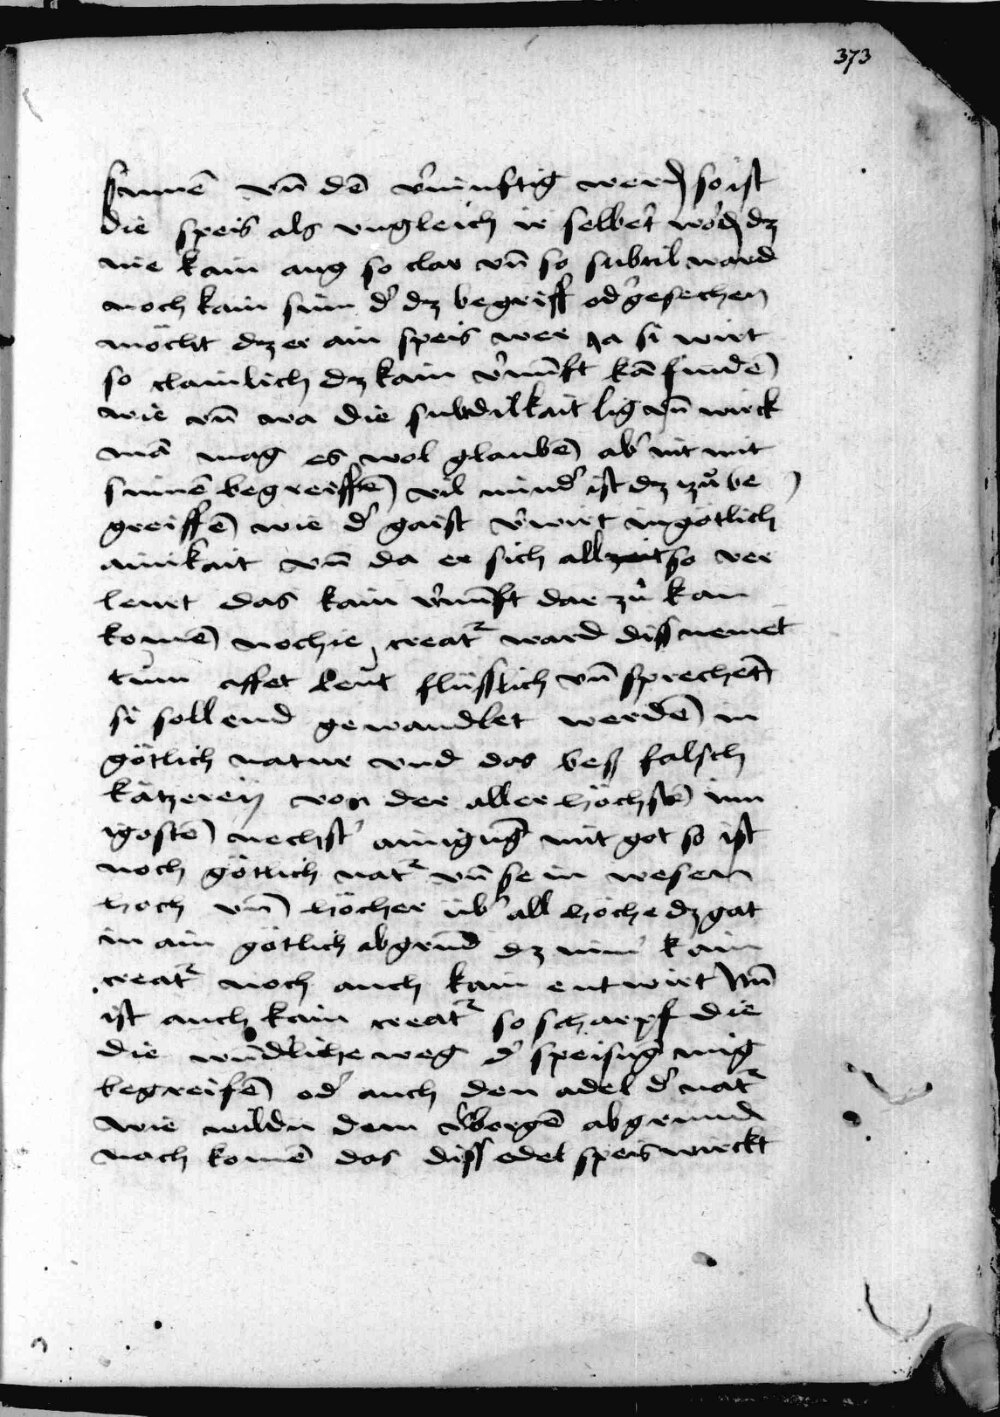 373
sinnē vn̄ dē v̓nünftig werdē so ist
die speis als vngleich ir selber wordē dz
nie kain aug so clar vn̄ so subtil ward
noch kain sinn d̓ dz begriff od̓ gesechen
möcht dz er ain speis wer ja si wirt
so clainlich dz kain v̓nūft kā findē
wie vn̄ wa die subdilkait lig vn̄ wirck
mā mag es wol glaubē ab̓ nit mit
sinnē begreiffē vil mind̓ ist dz zů be
greiffē wie d̓ gaist v̓wirt in götlich
ainikait vn̄ da er sich all zeit so ver
leurt das kain v̓nūft dar zů kan
komē noch ie creat᷑ ward diss nemet
tum affet leut flüsslich vn̄ sprechēt
si sollend gewandlet werdē in
götlich natur vnd das bess falsch
kätzereÿ von der aller höchstē inn
igostē nechst̓ ainigūg mit got so ist
noch götlich nat᷑ vn̄ sein wesen
hoch vn̄ höcher üb̓ all höche dz gat
in ain götlich abgrūd dz nim̓ kain
creat᷑ noch auch kain entwirt Nū
ist auch kain creat᷑ so scharpf die
die wūdliche weg d̓ speisūg mug
begreifē od̓ auch den adel d̓ nat᷑
wie wildn dem v̓borgē abgrund
nach komē das diss edel speis wirckt